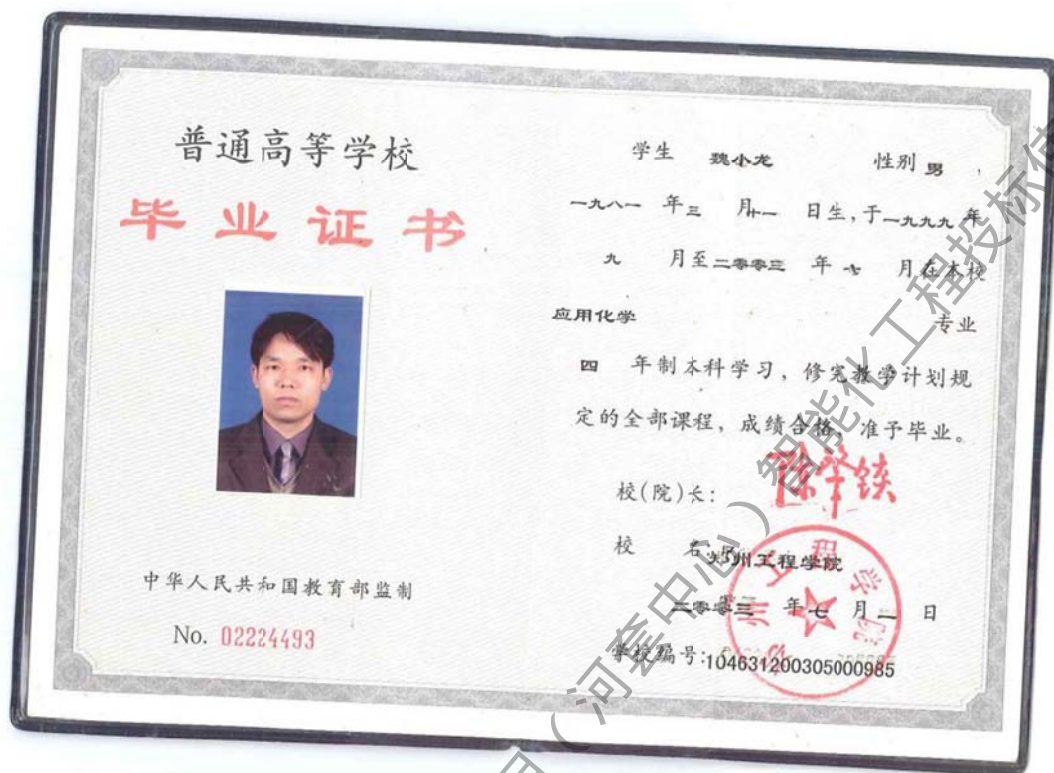 普通高等学校
毕业证书
中华人民共和国教育部监制
No. 02224493
学生 魏小龙 性别 男 ,
一九八一 年 三 月 十一 日生，于 一九九九 年
九 月至 二零零三 年 七 月在本校
应用化学 专业
四 年制本科学习，修完教学计划规
定的全部课程，成绩合格，准予毕业。
校(院)长：
校 名：郑州工程学院
二零零三 年 七 月 二 日
学校编号：104631200305000985
郑州工程学院
（河套中心）智能化工程投标使